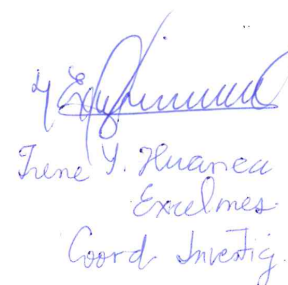 Irene Y. Huanca
Excelmes.
Coord Investig.